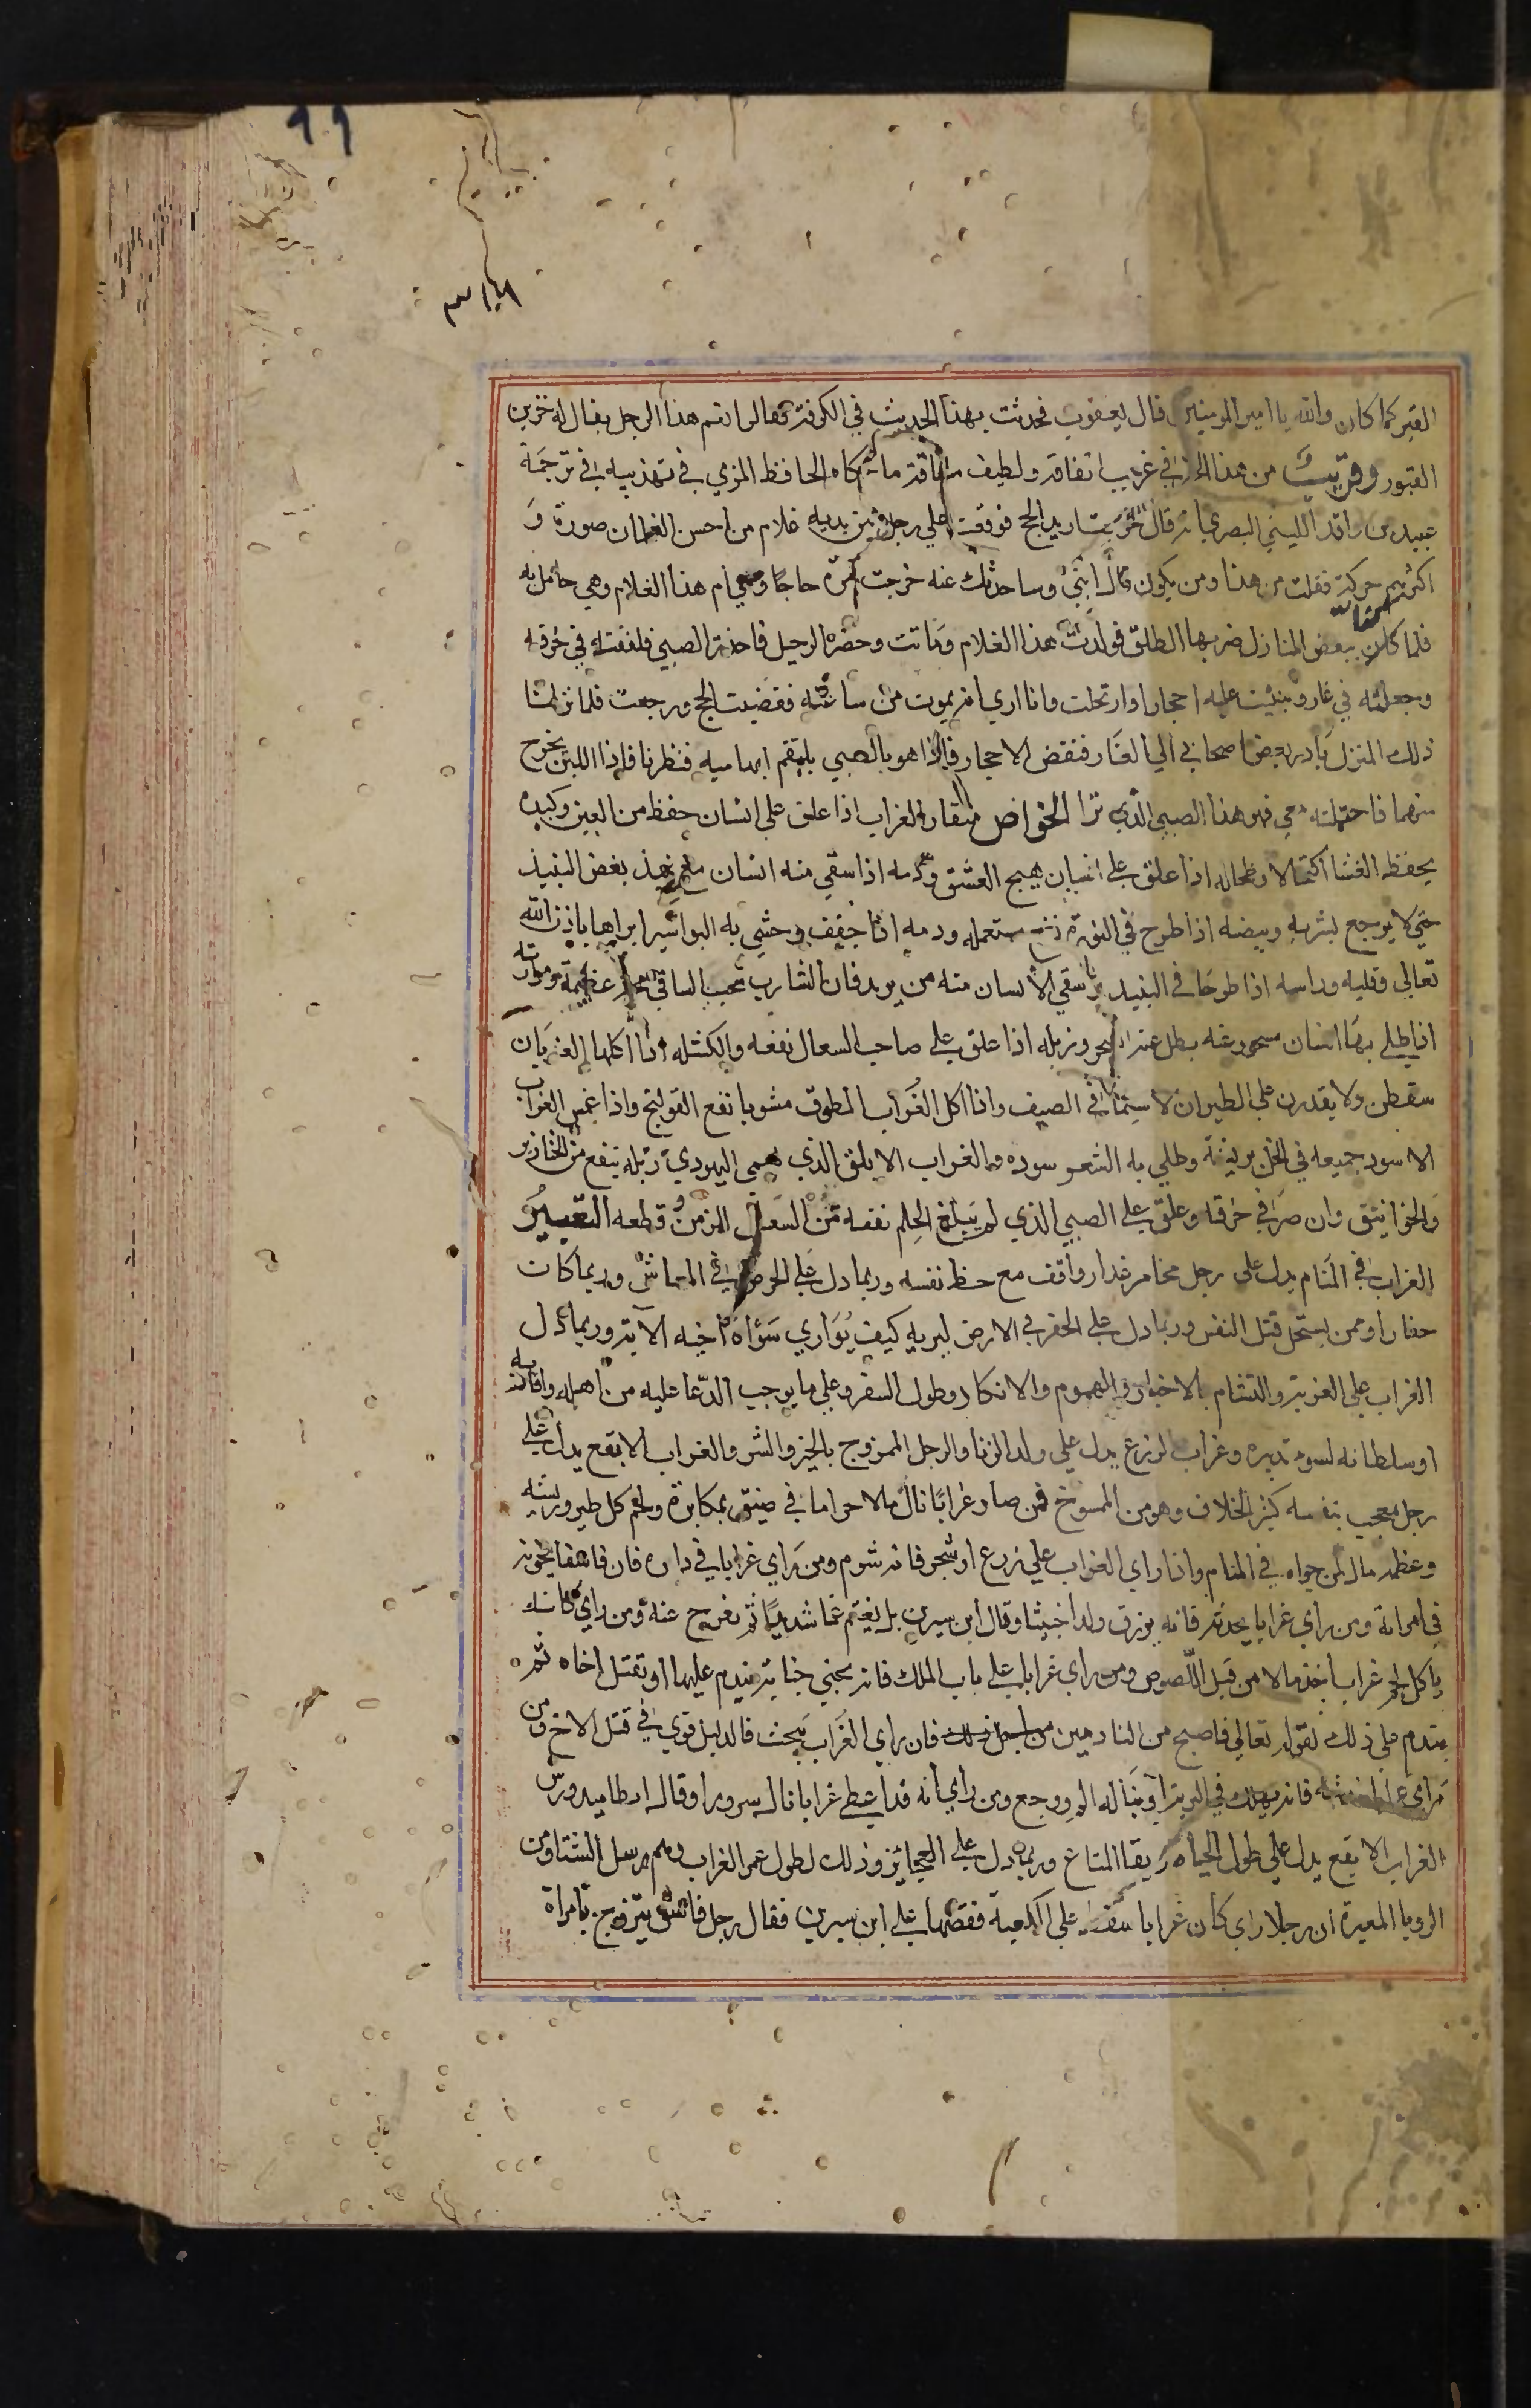 ١٩
القبر كما كان والله يا امير المومنين قال يعقوب فحدثت بهذا الحديث في الكوفة فقالوا نعم هذا الرجل يقال له خزين
القبور وقريب من هذا الخبر في غريب اتفاقه ولطيف مساقه ما حكاه الحافظ المزي في تهذيبه في ترجمة
عبيد بن واقد الليثي البصري انه قال خرجت اريد الحج فوقفت علي رجل بين يديه غلام من احسن الغلمان صورة و
اكثرهم حركة فقلت من هذا ومن يكون قال ابني وساحدثك عنه خرجت مرة حاجا ومعي ام هذا الغلام وهي حامل به
فلما كان ببعض المنازل ضربها الطلق فولدت هذا الغلام وماتت وحضر الرحيل فاخذت الصبي فلففته في خرقه
وجعلته في غار وبنيت عليه احجارا وارتحلت وانا اري انه يموت من ساعته فقضيت الحج ورجعت فلما نزلنا
ذلك المنزل بادر بعض اصحابي الي الغار فنقض الاحجار فاذا هو بالصبي يلتقم ابهاميه فنظرنا فاذا اللبن يخرج
منهما فاحتملته معي فهو هذا الصبي الذي ترا الخواص منقار الغراب اذا علق على انسان حفظ من العين وكبده
يحفظ الغشا اكتحالا وطحاله اذا علق على انسان هيج العشق ودمه اذا سقي منه انسان مع نبيذ بغض النبيذ
حتي لا يرجع لشربه وبيضه اذا طرح في النورة مستعمله ودمه اذا جفف وحشي به البواسير ابراها باذن الله
تعالى وقلبه وراسه اذا طرحا في النبيذ وسقي الانسان منه من يريد فان الشارب يحب الساقي محبة عظيمة ومرارته
اذا طلي بها انسان مسحور عنه بطل عنه السحر وزبله اذا علق على صاحب السعال نفعه والكشله اذا اكلها الغربان
سقطن ولا يقدرن على الطيران لا سيما في الصيف واذا اكل الغراب المطوق مشويا نفع القولنج واذا غمس الغراب
الاسود جميعه في الخل بريشه وطلي به الشعر سوده والغراب الابلق الذي يسمى اليهودي زبله ينفع من الخنازير
والخوانيق وان صر في خرقه وعلق على الصبي الذي لم يبلغ الحلم نفعه من السعال المزمن وقطعه التعبير
الغراب في المنام يدل على رجل مخامر غدار واقف مع حظ نفسه وربما دل على الحرص في المعاش وربما كان
حفارا وممن يستحل قتل النفس وربما دل على الحفر في الارض ليريه كيف يواري سوأة اخيه الاية وربما دل
الغراب على الغربة والتشام بالاخبار والهموم والانكاد وطول السفر وعلي ما يوجب الدعا عليه من اهله واقاربه
او سلطانه لسوء تدبيره وغراب الزرع يدل علي ولد الزنا والرجل الممزوج بالخير والشر والغراب الابقع يدل على
رجل معجب بنفسه كثير الخلاف وهو من المسوخ فمن صار غرابا نال مالا حراما في ضيق بمكابرة ولحم كل طير وريشه
وعظمه مال لمن حواه في المنام واذا راي الغراب على زرع او شجر فانه شوم ومن راي غرابا في داره فان فاسقا يخونه
في امراته ومن راي غرابا يحدثه فانه يرزق ولدا خبيثا وقال ابن سيرين بل يغتم غما شديدا ثم يفرج عنه ومن راي كانه
ياكل لحم غراب اخذ مالا من قبل اللصوص ومن راي غرابا على باب الملك فانه يجني جناية يندم عليها او يقتل اخاه ثم
يندم علي ذلك لقوله تعالي فاصبح من النادمين من اجل ذلك فان راي الغراب يبحث فالدليل قوي في قتل الاخ ومن
راي غرابا خدشه فانه يهلك في البرية او يناله الم ووجع ومن راي انه قد اعطي غرابا نال سرورا وقال ارطاميدورس
الغراب الابقع يدل علي طول الحياة وبقا المتاع وربما دل على العجائز وذلك لطول عمر الغراب وهم رسل الشتا ومن
الرويا المعبرة ان رجلا راي كان غرابا سقط على الكعبة فقصها على ابن سيرين فقال رجل فاسق يتزوج بامراة